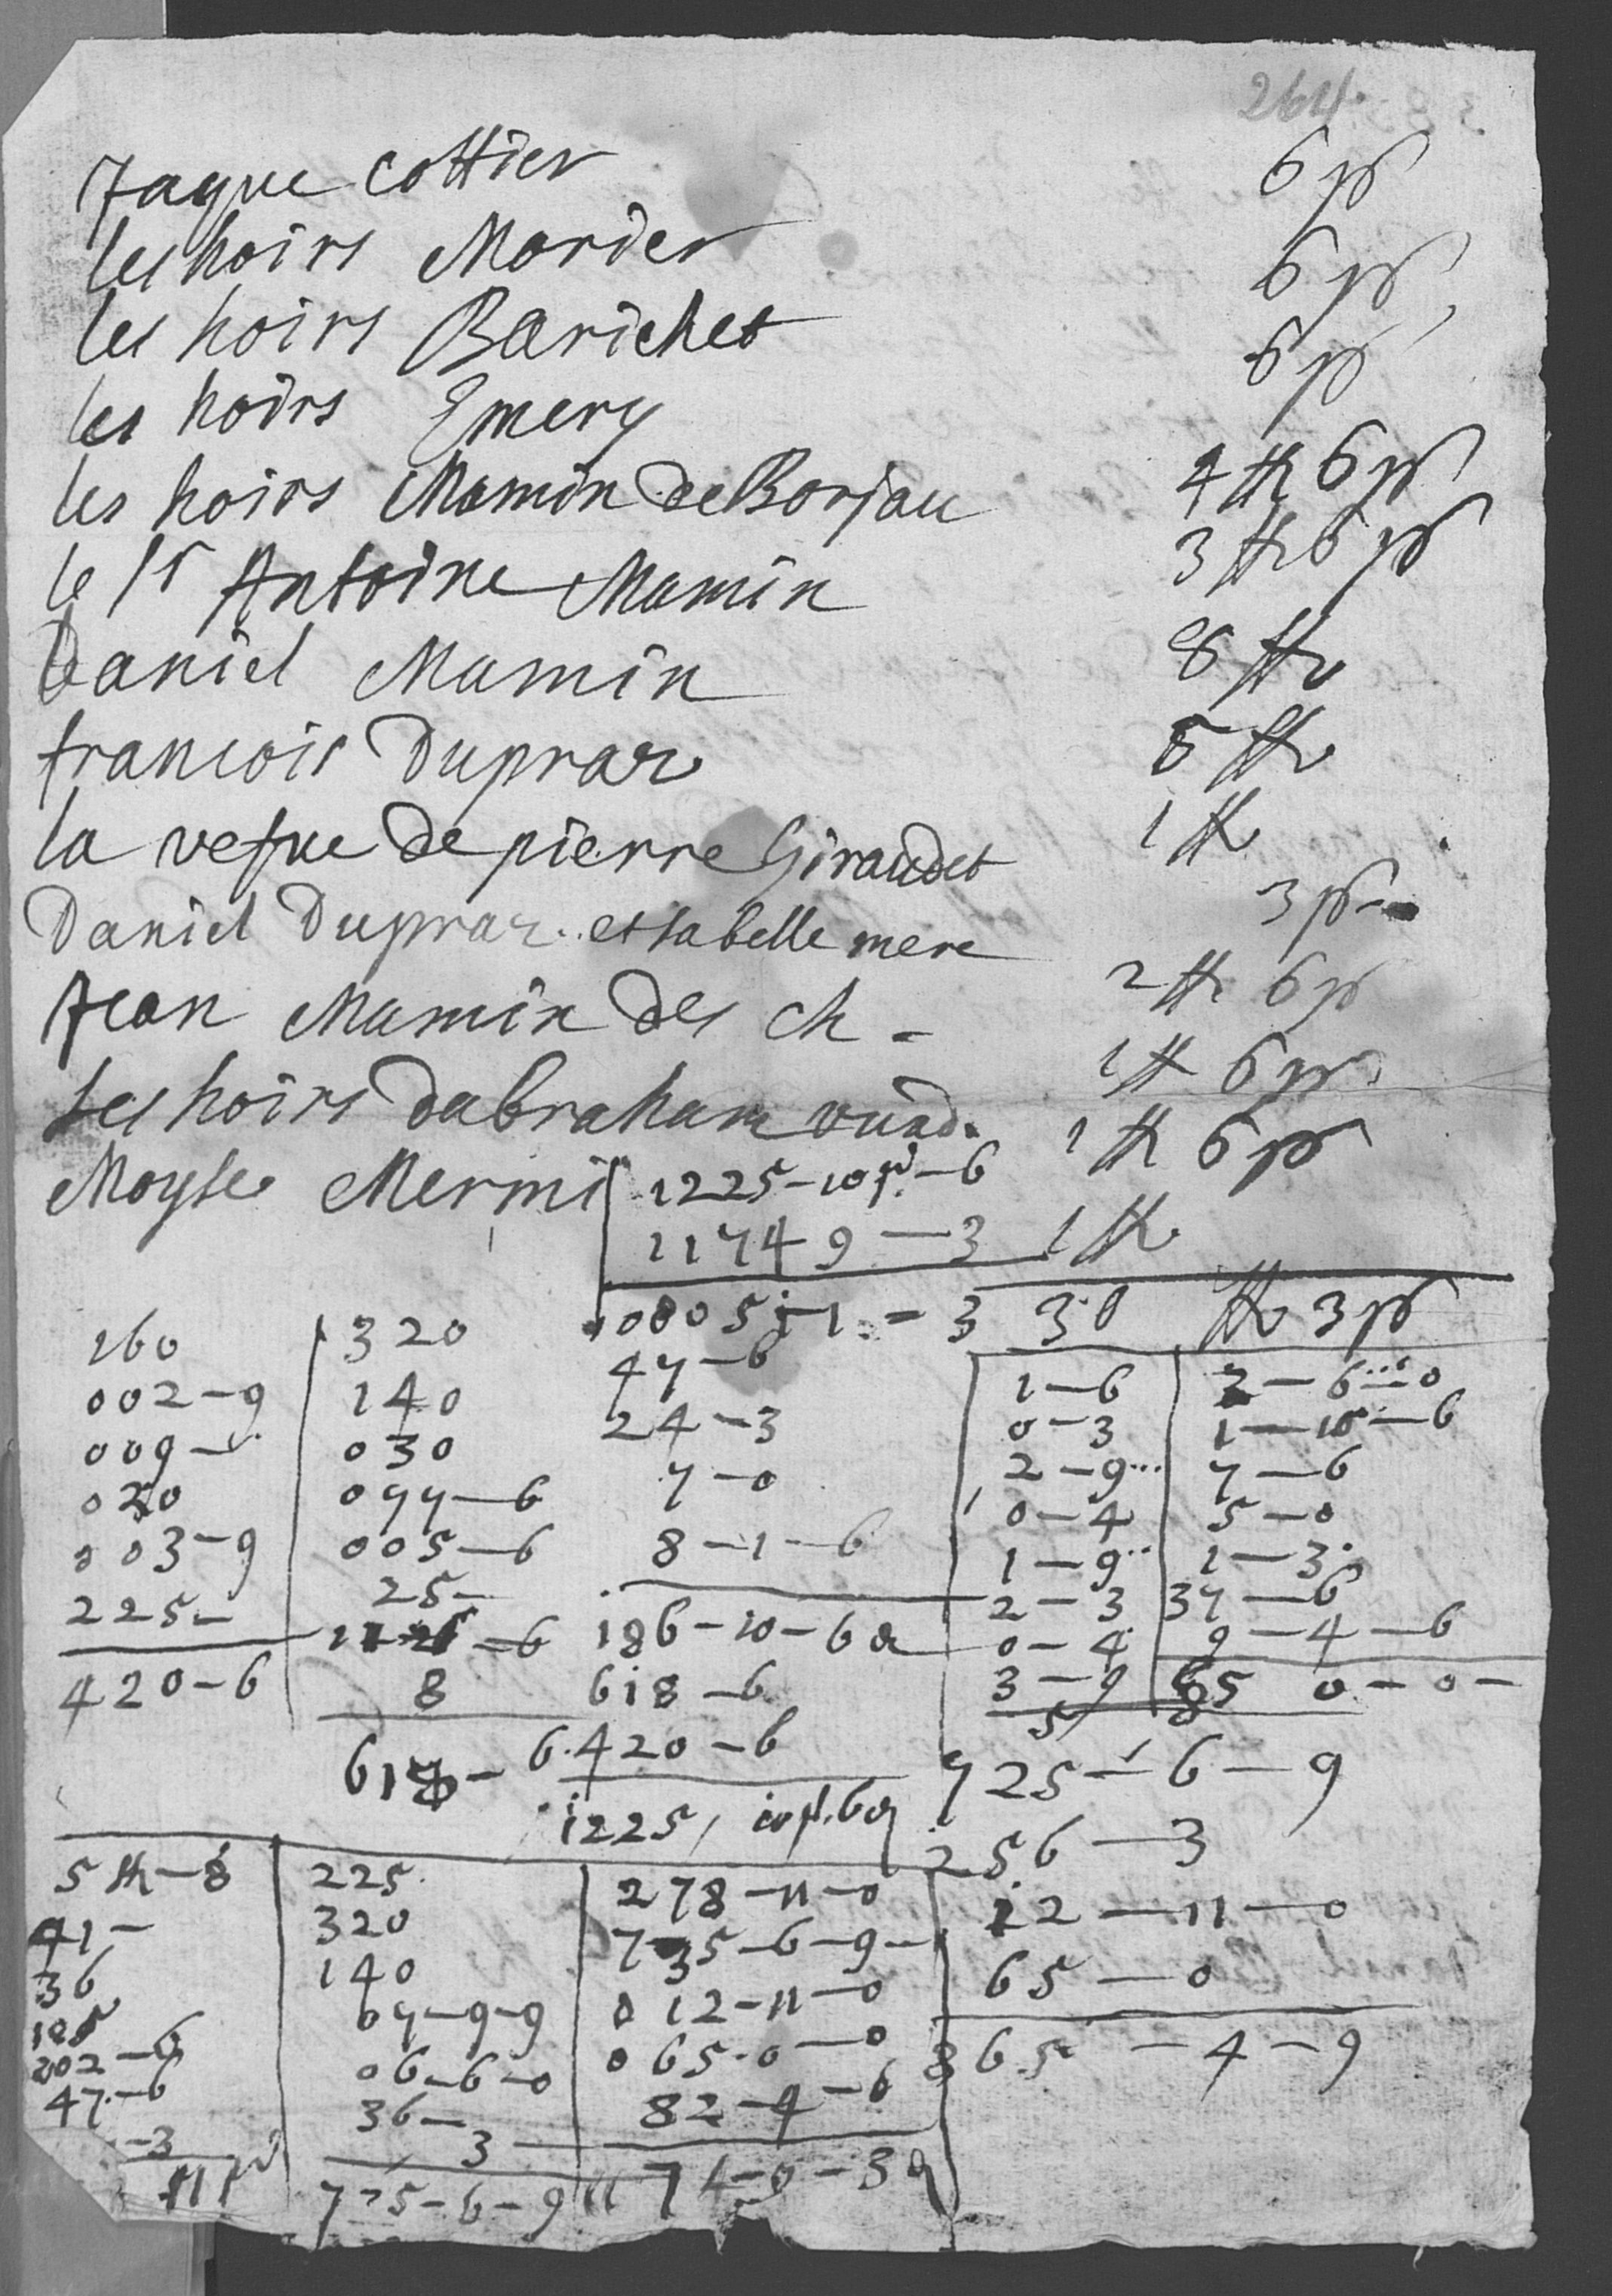 264.
Jaque Cottier 6 ꝑß
les hoirs Morier 6 ꝑß
les hoirs Barichet 6 ꝑß
les hoirs Emery 4 ff 6 ꝑß
les hoirs Mamin de Borjau 3 ff 6 ꝑß
le sr Antoine Mamin 8 ff
Daniel Mamin 5 ff
francois Dupraz 1 ff
la vefue de pierre Giraudet 3 ꝑß
Daniel Dupraz et sa belle mere 2 ff 6 ꝑß
Jean Mamin des ch - 1 ff 6 ꝑß
Les hoirs dabraham vuad. 1 ff 6 ꝑß
Moyse Mermi 1 ff
30 ff 3 ꝑß
1225-10 s.-6
1174 9-3
00051-1-3
160
002-9
009-
020
003-9
225-
420-6
320
140
030
077-6
005-6
25-
-6
8
618-6
47-6
24-3
7-0
8-1-6
186-10-6 d
618-6
420-6
1225, 10 s. 6 d
1-6
0-3
2-9
0-4
1-9
2-3
0-4
3-9
2-6-0
1-10-6
7-6
5-0
1-3
37-6
9-4-6
65 0-0-
725-6-9
256-3
22-11-0
65-0
865-4-9
5 ff-8
41-
36
105
202-6
47-6
-3
225
320
140
67-9-9
06-6-0
36-
3
735-6-9
278-11-0
735-6-9-
012-11-0
065-0-0
82-4-6
1174-9-3 d